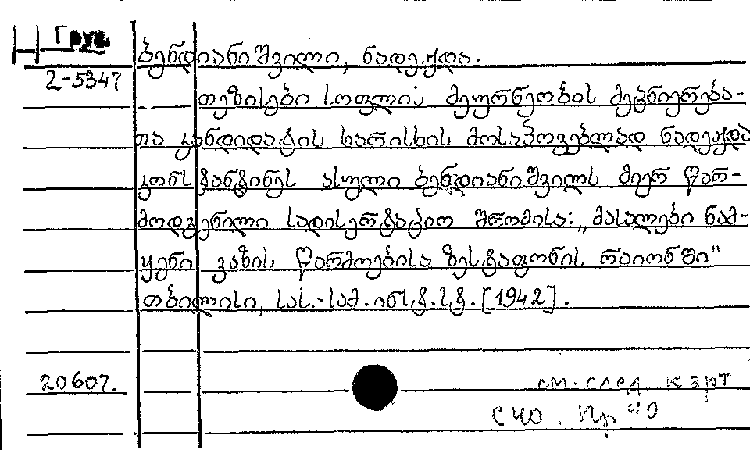 Груз
2-5347
ბენდიანიშვილი, ნადეჟდა.
თეზისები სოფლის მეურნეობის მეცნიერება-
თა კანდიდატის ხარისხის მოსაპოვებლად ნადეჟდა
კონსტანტინეს ასული ბენდიანიშვილს მიერ წარ-
მოდგენილი სადისერტაციო შრომისა: „მასალები ნამ-
ყენი ვაზის წარმოებისა ზესტაფონის რაიონში"
თბილისი, სას.-სამ. ინსტ. სტ. [1942].
20607.
см. след. к-зрт